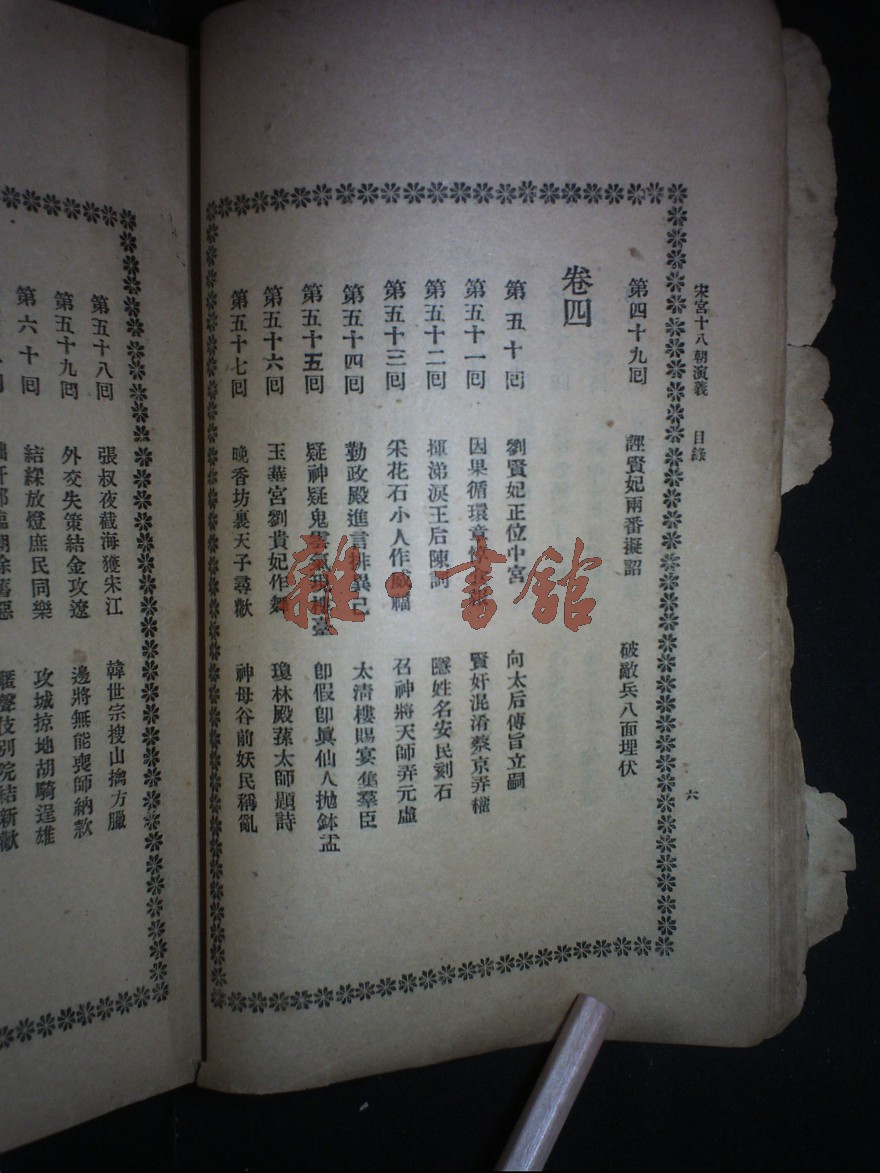 宋宮十八朝演義 目錄 六
第四十九回 誣賢妃兩番擬詔 破敵兵八面埋伏
卷四
第五十回 劉賢妃正位中宮 向太后傳旨立嗣
第五十一回 因果循環章惇 賢奸混淆蔡京弄權
第五十二回 揮涕淚王后陳詞 隱姓名安民刻石
第五十三回 采花石小人作威福 召神將天師弄元虛
第五十四回 勤政殿進言排異己 太清樓賜宴集羣臣
第五十五回 疑神疑鬼 臺 卽假卽眞仙人拋鉢盂
第五十六回 玉華宮劉貴妃作舞 瓊林殿蔡太師題詩
第五十七回 晚香坊裏天子尋歡 神母谷前妖民稱亂
第五十八回 張叔夜截海獲宋江 韓世宗搜山擒方臘
第五十九回 外交失策結金攻遼 邊將無能喪師納款
第六十回 結綵放燈庶民同樂 攻城掠地胡騎逞雄
別院結新歡
雜·書館